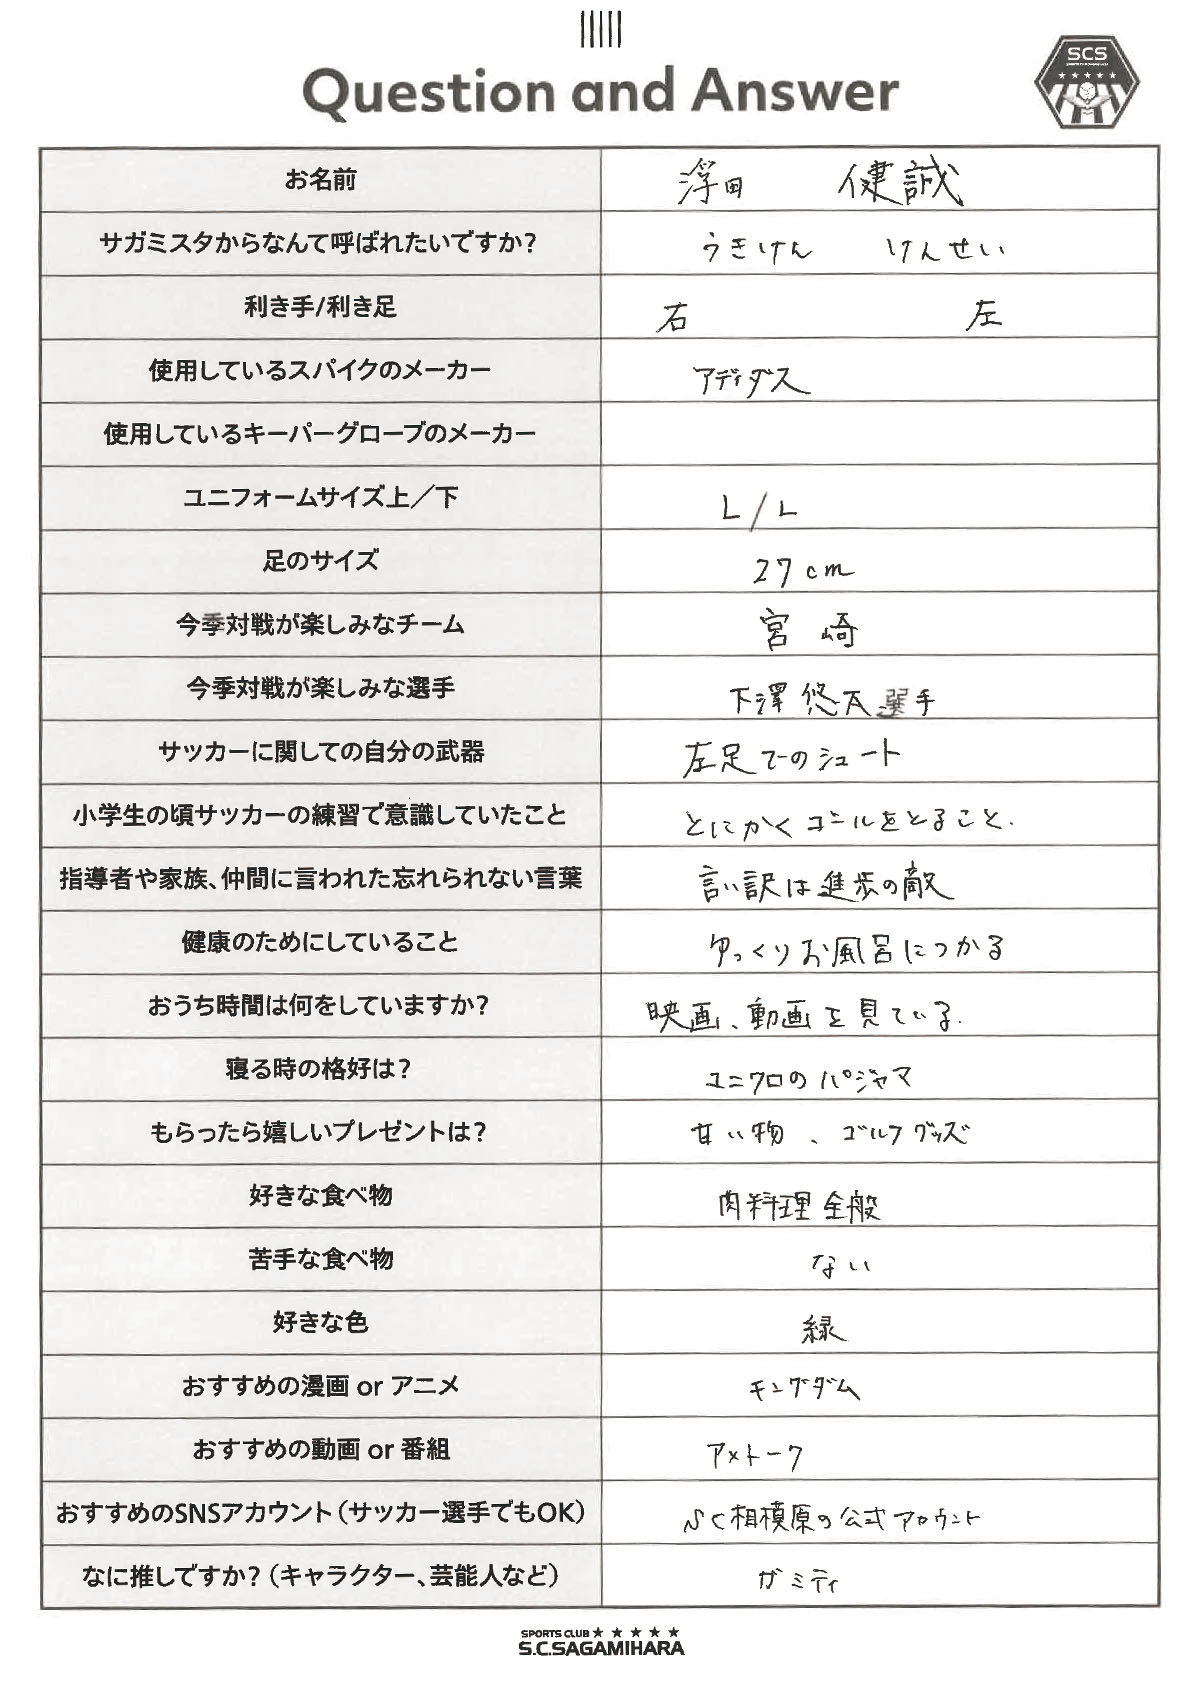 Question and Answer
SCS
お名前 浮田 健誠
サガミスタからなんて呼ばれたいですか? うきけん けんせい
利き手/利き足 右 左
使用しているスパイクのメーカー アディダス
使用しているキーパーグローブのメーカー
ユニフォームサイズ上／下 L/L
足のサイズ 27cm
今季対戦が楽しみなチーム 宮崎
今季対戦が楽しみな選手 下澤悠太選手
サッカーに関しての自分の武器 左足でのシュート
小学生の頃サッカーの練習で意識していたこと とにかくゴールをとること.
指導者や家族、仲間に言われた忘れられない言葉 言い訳は進歩の敵
健康のためにしていること ゆっくりお風呂につかる
おうち時間は何をしていますか? 映画、動画を見ている.
寝る時の格好は? ユニクロのパジャマ
もらったら嬉しいプレゼントは? 甘い物、ゴルフグッズ
好きな食べ物 肉料理全般
苦手な食べ物 ない
好きな色 緑
おすすめの漫画 or アニメ キングダム
おすすめの動画 or 番組 アメトーク
おすすめのSNSアカウント（サッカー選手でもOK） SC相模原の公式アカウント
なに推しですか?（キャラクター、芸能人など） ガミティ
SPORTS CLUB ★ ★ ★ ★ ★
S.C.SAGAMIHARA